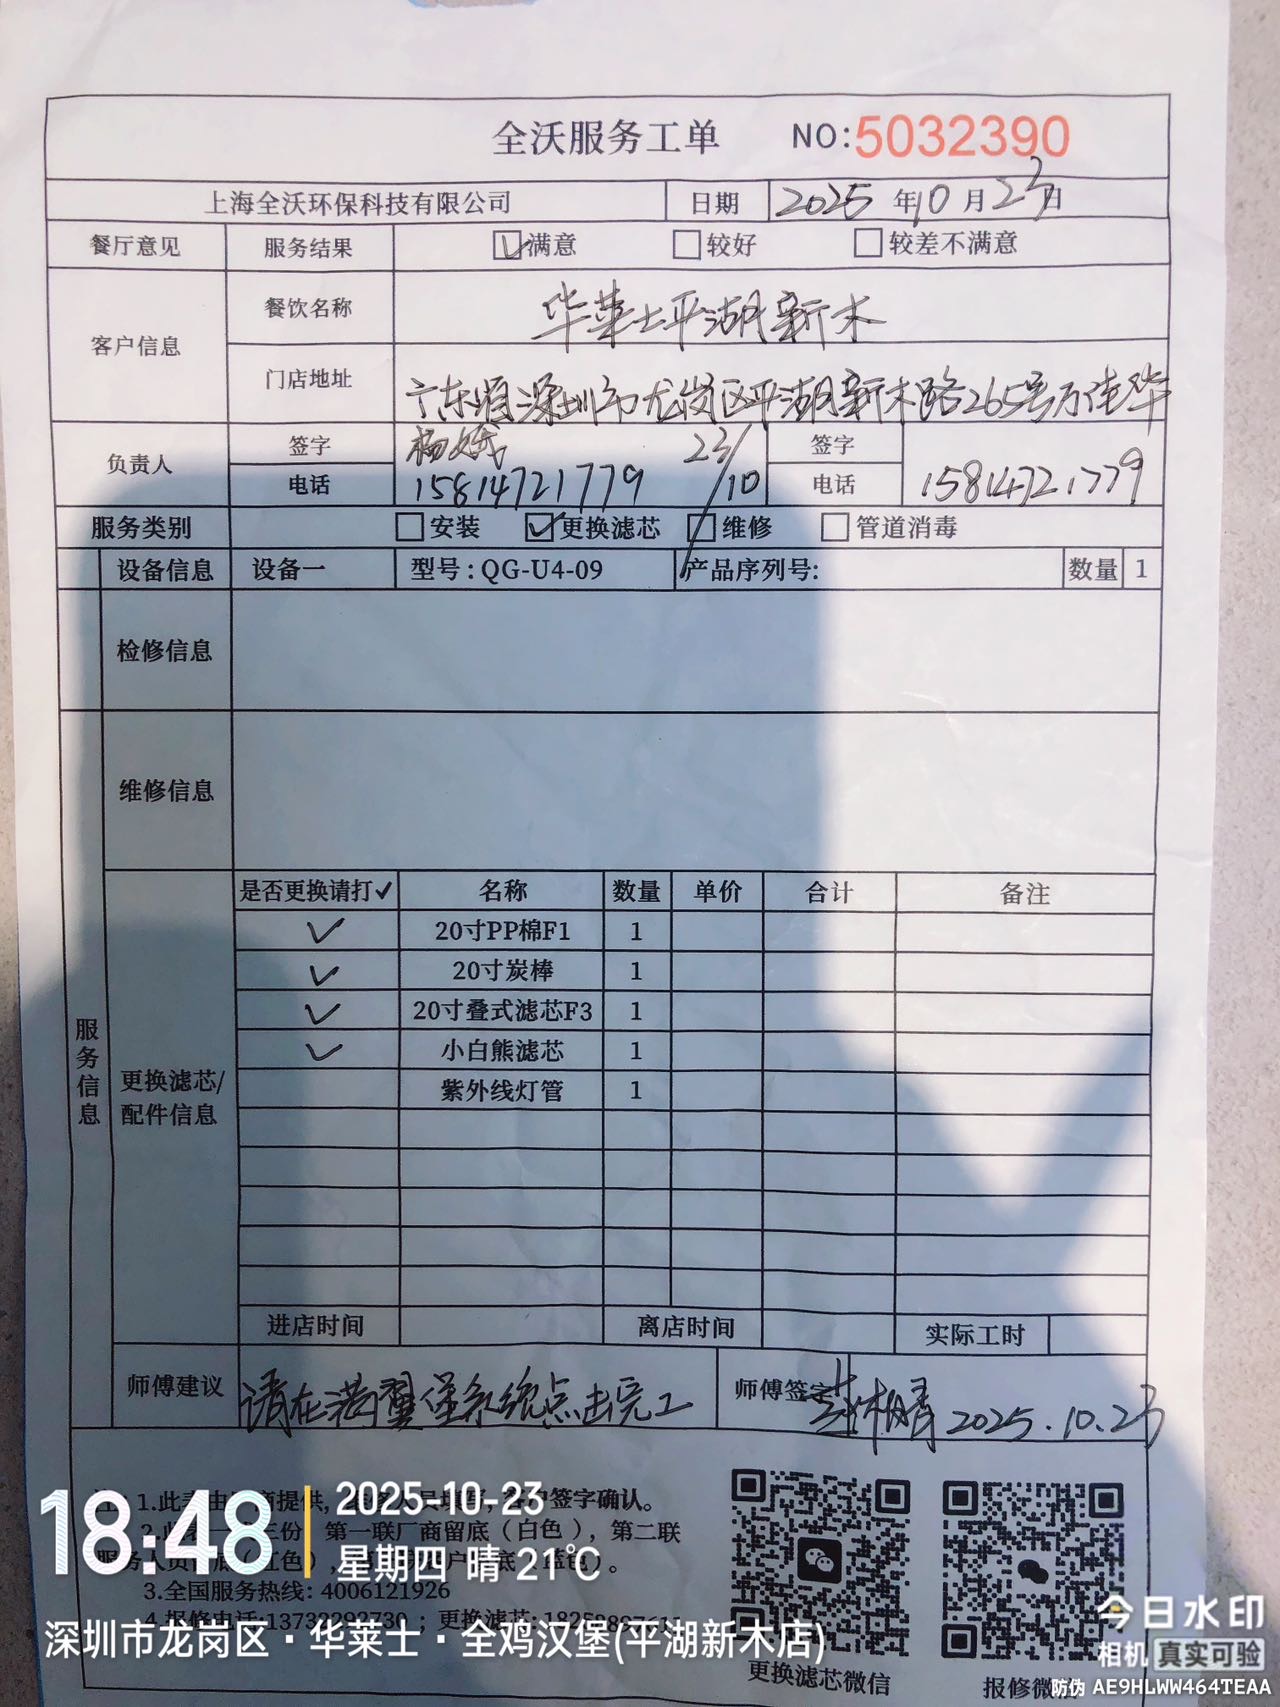 全沃服务工单 NO:5032390
上海全沃环保科技有限公司 日期 2025年10月23日
餐厅意见 服务结果 ☑满意 □较好 □较差不满意
客户信息 餐饮名称 华莱士平湖新木
门店地址 广东省深圳市龙岗区平湖新木路265号万佳华
负责人 签字 杨 23/10 签字
电话 15814721779 电话 15814721779
服务类别 □安装 ☑更换滤芯 □维修 □管道消毒
设备信息 设备一 型号:QG-U4-09 产品序列号: 数量 1
检修信息
维修信息
服务信息
更换滤芯/配件信息
是否更换请打✓ 名称 数量 单价 合计 备注
✓ 20寸PP棉F1 1
✓ 20寸炭棒 1
✓ 20寸叠式滤芯F3 1
✓ 小白熊滤芯 1
紫外线灯管 1
进店时间 离店时间 实际工时
师傅建议 请在满堡系统点击完工 师傅签字 2025.10.23
1.此表由商提供, 签字确认。
三份 第一联厂商留底(白色), 第二联
3.全国服务热线: 4006121926
4.报修电话:13732292730 ; 更换滤芯:
更换滤芯微信
报修微
18:48
2025-10-23
星期四 晴 21℃
深圳市龙岗区·华莱士·全鸡汉堡(平湖新木店)
今日水印
相机 真实可验
防伪 AE9HLWW464TEAA